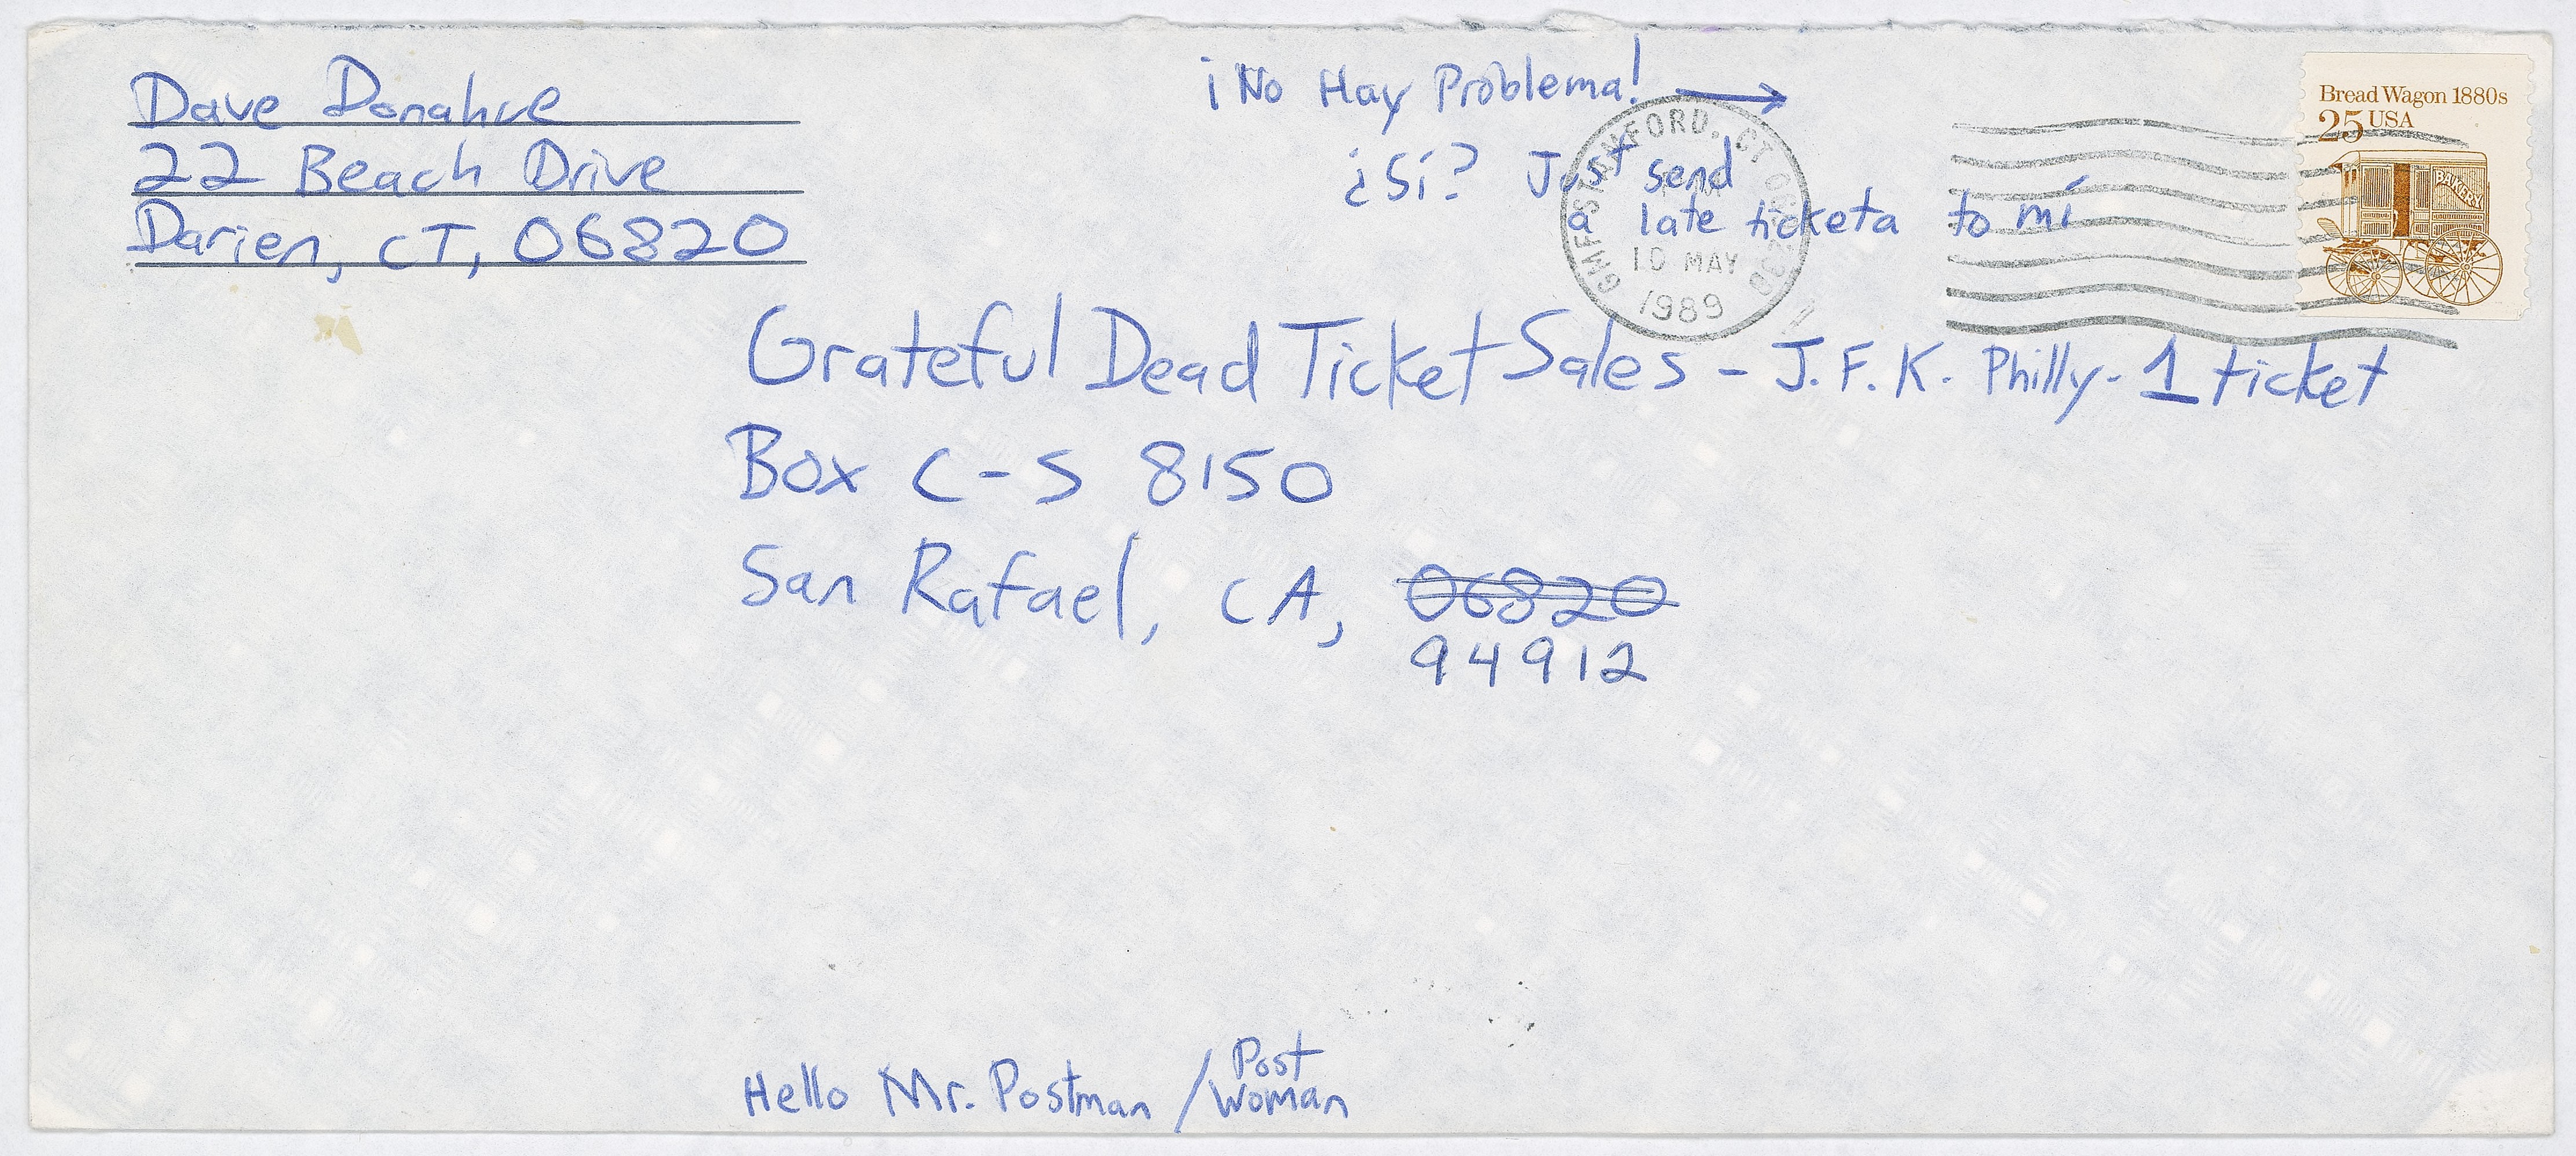 Dave Donahue
22 Beach Drive
Darien, CT, 06820
¡No Hay Problema! →
¿Sí? Just send
a late ticketa to mí
STAMFORD, CT
10 MAY
1989
Bread Wagon 1880s
25 USA
BAKERY
Grateful Dead Ticket Sales - J.F.K. Philly - 1 ticket
Box C-S 8150
San Rafael, CA, 06820
94912
Hello Mr. Postman / Post
Woman